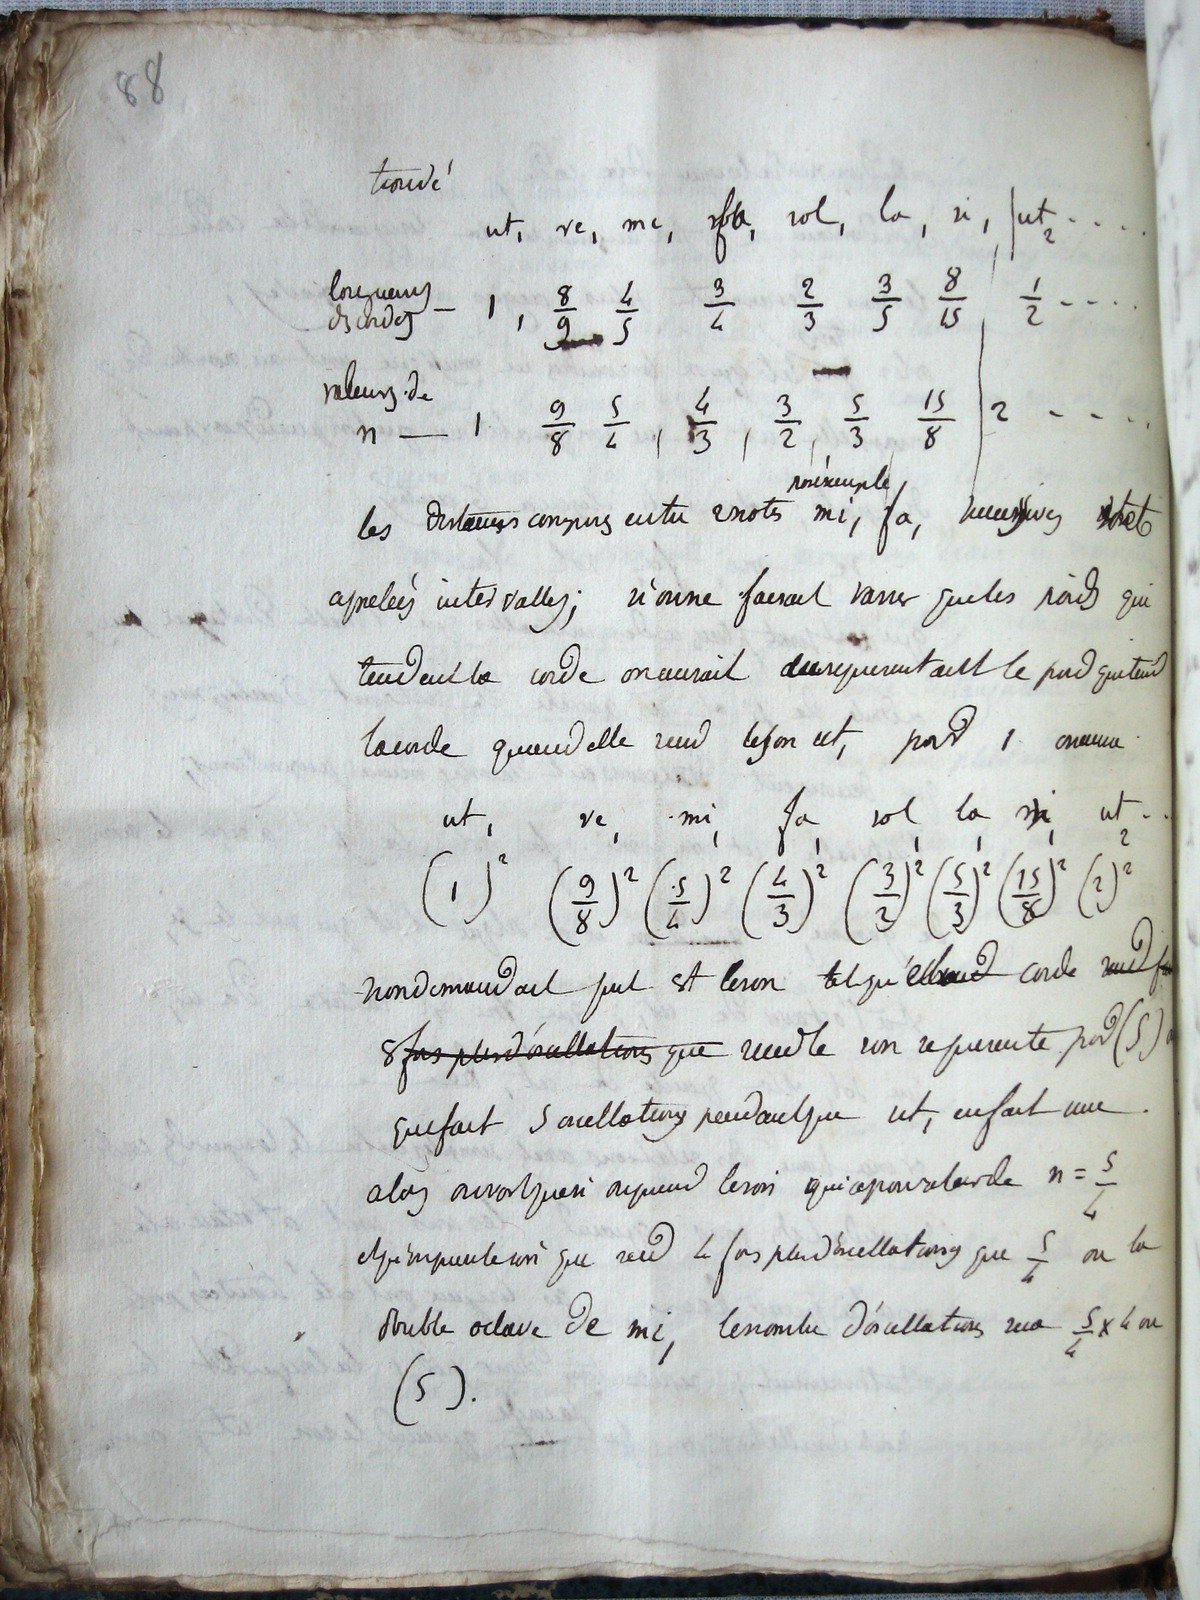 88
trouvé
ut, re, mi, fa, sol, la, si, | ut2 - - - -
longueurs
des cordes — 1, 8/9 4/5 3/4 2/3 3/5 8/15 1/2 - - - -
valeurs de
n — 1 9/8 5/4, 4/3, 3/2, 5/3 15/8 2 - - - -
par exemple
les distances comprises entre 2 notes mi, fa, successives sont
appelées intervalles; si on ne faisait varier que les poids qui
tendent la corde on aurait en representant le poid qui tend
la corde quand elle rend le son ut, par 1 on aura
ut, re, mi, fa, sol, la, si, ut2 - -
(1)² (9/8)² (5/4)² (4/3)² (3/2)² (5/3)² (15/8)² (2)²
si on demandait quel est le son tel qu'
8 fois plus d'oscillations que rend le son represente par (5)
qui fait 5 oscillations pendant que ut, en fait une.
alors on voit que si on prend le son qui a pour valeur de n = 5/4
et qu'on prenne le son qui rend 4 fois plus d'oscillations que 5/4 ou la
double octave de mi, le nombre d'oscillations sera 5/4 x 4 ou
(5).